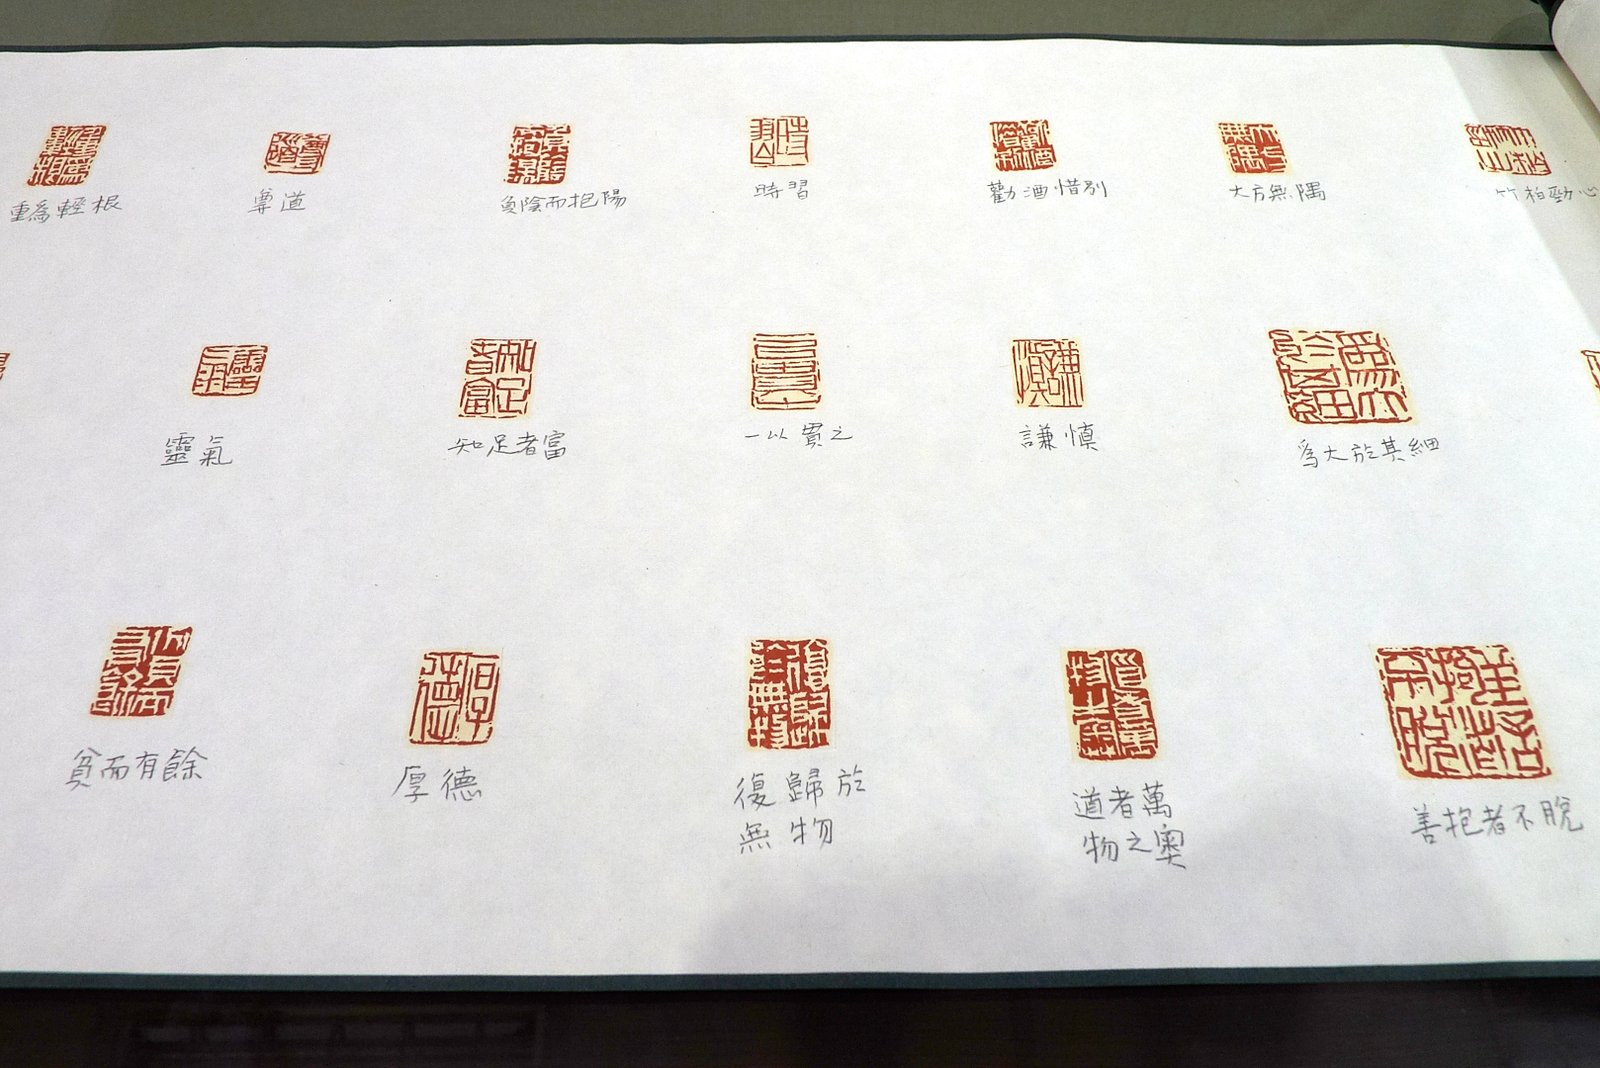 重為輕根
尊道
負陰而抱陽
時習
勸酒惜別
大方無隅
竹柏勁心
靈氣
知足者富
一以貫之
謙慎
為大於其細
貧而有餘
厚德
復歸於
無物
道者萬
物之奧
善抱者不脫